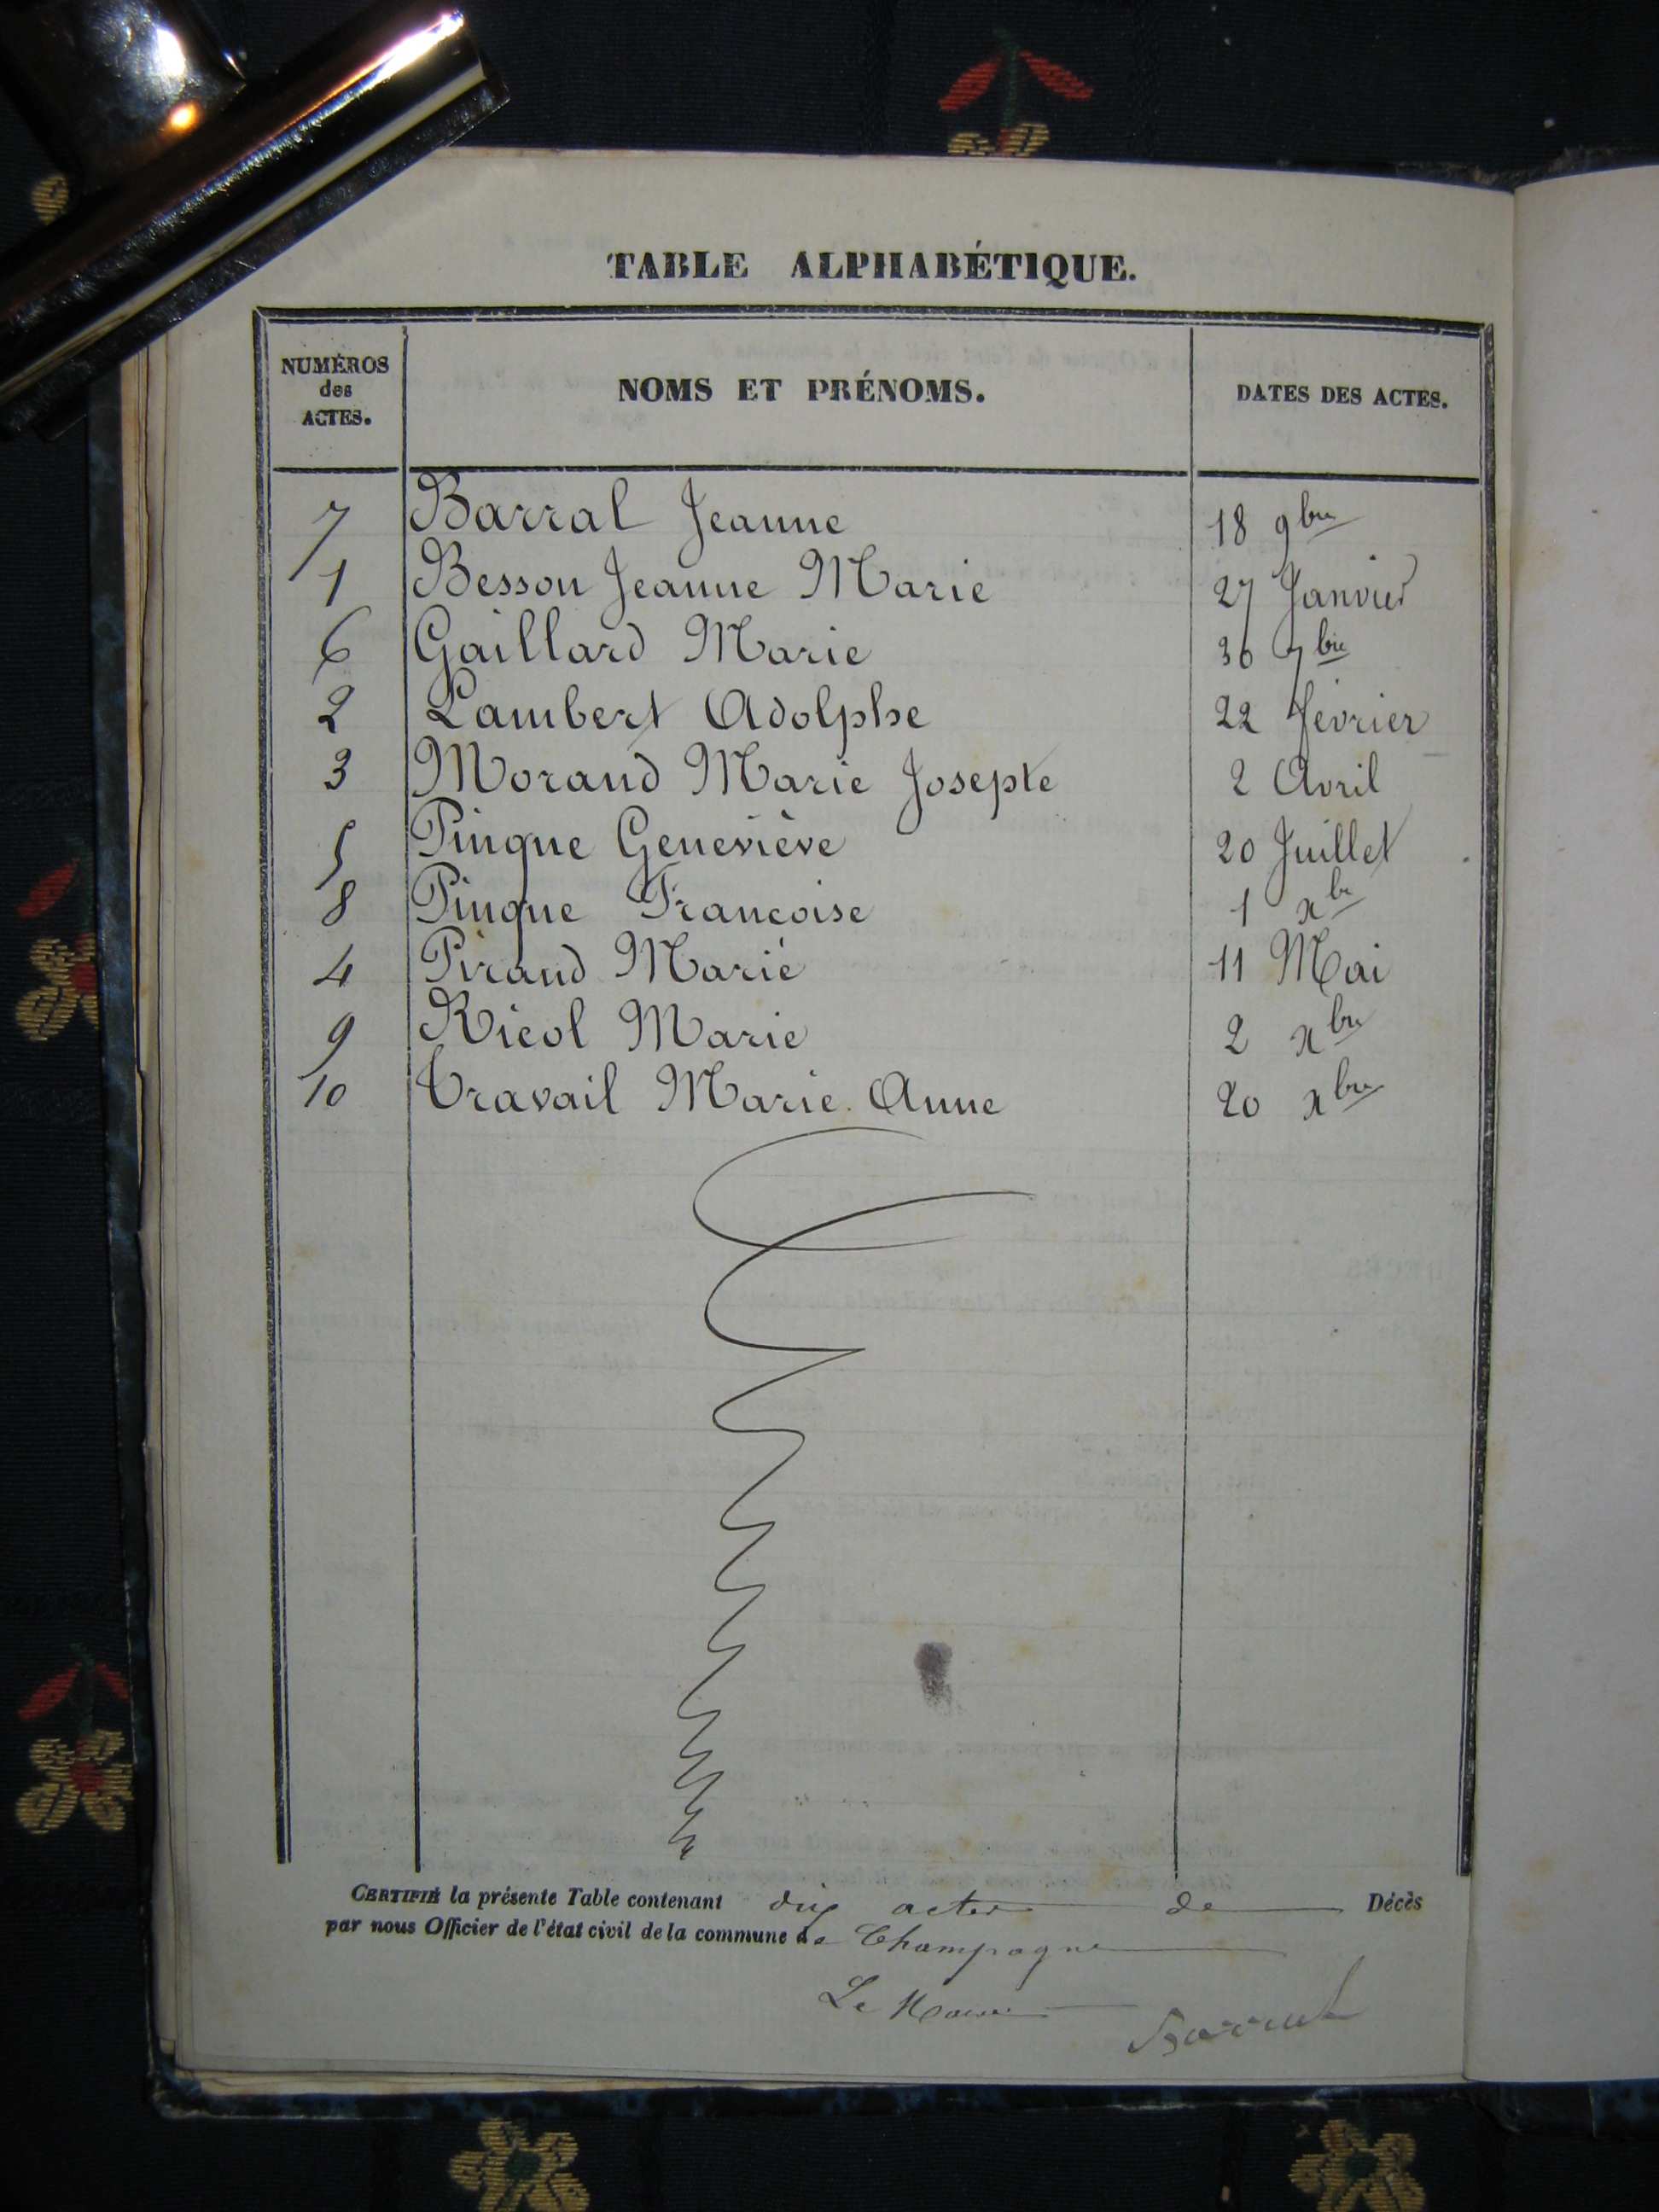 TABLE ALPHABÉTIQUE.
NUMÉROS des ACTES. NOMS ET PRÉNOMS. DATES DES ACTES.
7 Barral Jeanne 18 9bre
1 Besson Jeanne Marie 27 Janvier
6 Gaillard Marie 30 7bre
2 Lambert Adolphe 22 février
3 Morand Marie Josepte 2 Avril
5 Pinque Geneviève 20 Juillet
8 Pinque Francoise 1 xbre
4 Pirand Marie 11 Mai
9 Ricol Marie 2 xbre
10 Travail Marie Anne 20 xbre
CERTIFIÉ la présente Table contenant dix actes de Décès
par nous Officier de l'état civil de la commune de Champagne
Le Maire
Barral